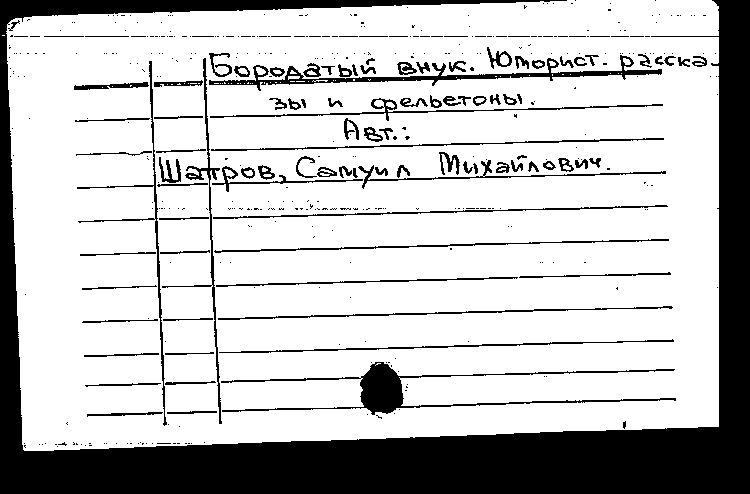 Бородатый внук. Юморист. расска-
зы и фельетоны.
Авт.:
Шатров, Самуил Михайлович.